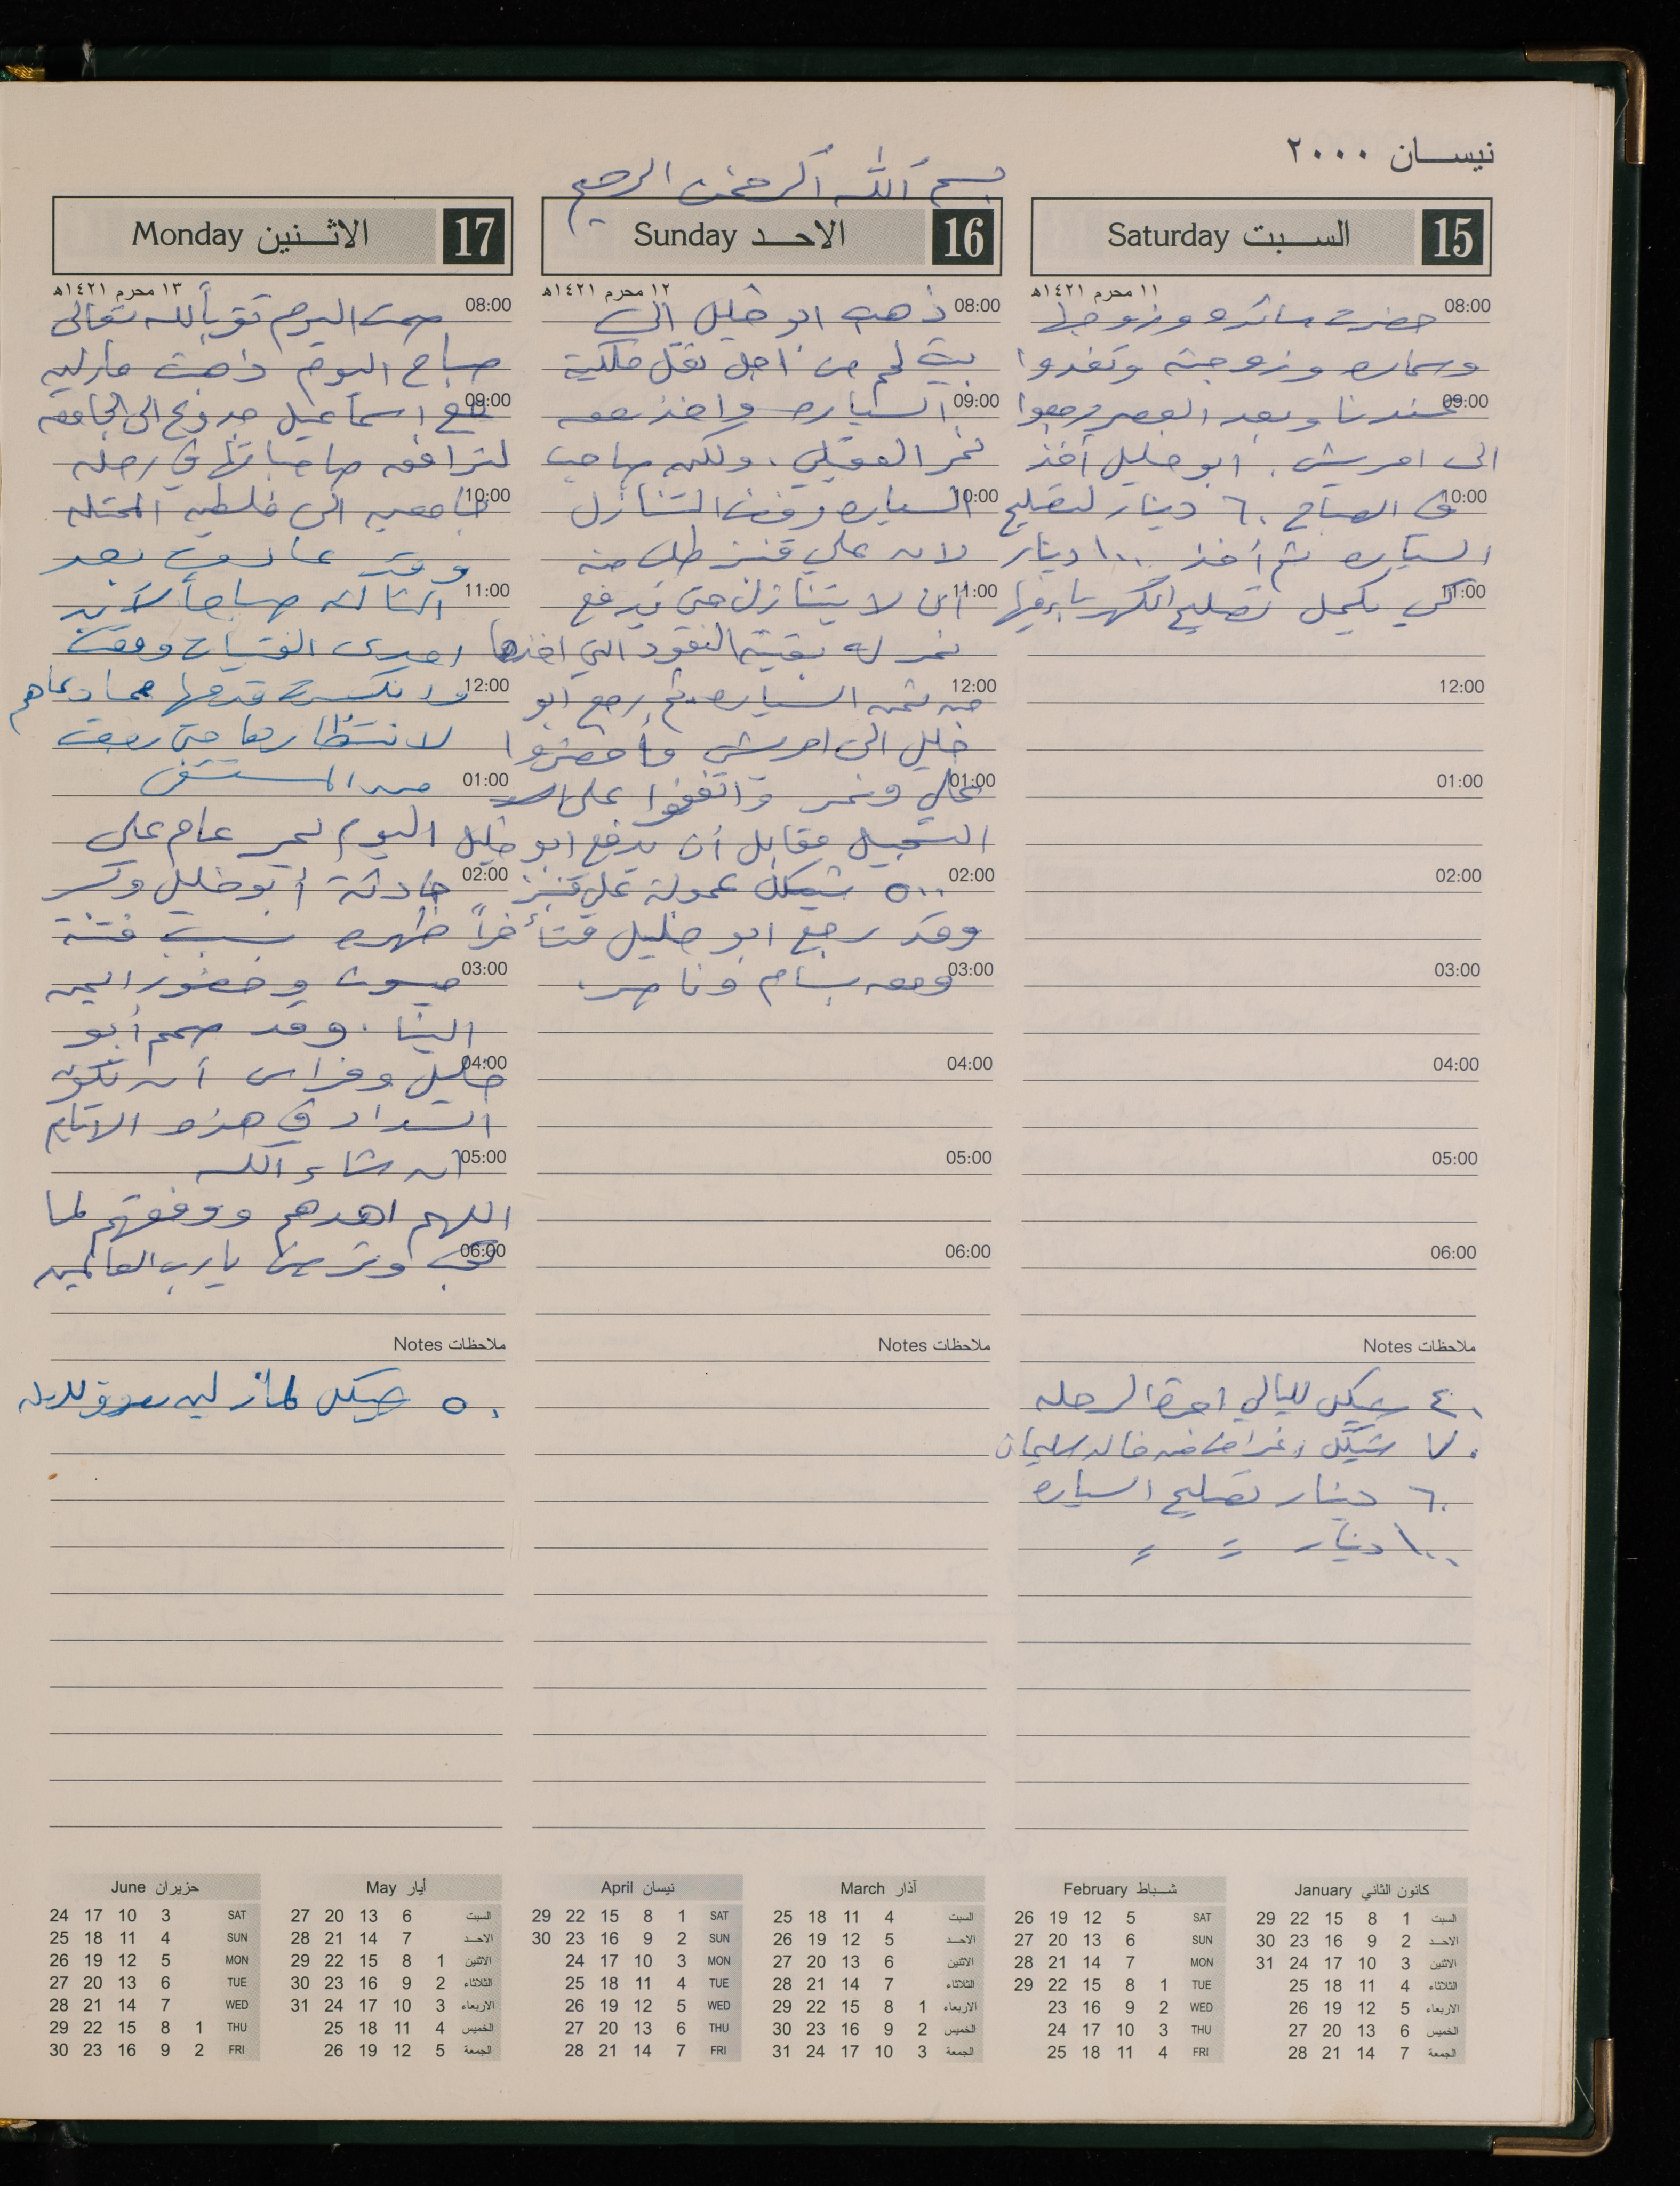 نيسان ٢٠٠٠
بسم الله الرحمن الرحيم
15 السبت Saturday
١١ محرم ١٤٢١هـ
08:00 حضرت سائده وزوجها
وساره وزوجته وتغدوا
09:00 عندنا وبعد العصر رجعوا
الى امريش. أبو خليل أخذ
10:00 في الصباح ٦٠ دينار لتصليح
السياره ثم أخذ ١٠٠ دينار
11:00 كي يكمل تصليح الكهرباء فيها
12:00
01:00
02:00
03:00
04:00
05:00
06:00
ملاحظات Notes
٤٠ شيكل لليالي اجرة الرحله
٧٠ شيكل اغراض من خالد سليمان
٦٠ دينار تصليح السياره
١٠٠ دينار = =
16 الاحد Sunday
١٢ محرم ١٤٢١هـ
08:00 ذهب ابو خليل الى
بيت لحم من اجل نقل ملكية
09:00 السياره واخذ معه
نمر العقيلي. ولكن صاحب
10:00 السياره رفض التنازل
لان علي قنيز طلب منه
11:00 ان لا يتنازل حتى يدفع
نمر له بقية النقود التي اخذها
12:00 من ثمن السياره. ثم رجع ابو
خليل الى امريش وأحضروا
01:00 علي ونمر واتفقوا على
التسجيل مقابل أن يدفع ابو خليل
02:00 ٥٠٠ شيكل عمولة علي قنيز
وقد رجع ابو خليل متأخراً
03:00 ومعه بسام وناصر.
04:00
05:00
06:00
ملاحظات Notes
17 الاثنين Monday
١٣ محرم ١٤٢١هـ
08:00 صمت اليوم تقرباً لله تعالى
صباح اليوم ذهبت مارلين
09:00 مع اسماعيل جدوع الى الجامعه
لترافق صاحباتها في رحله
10:00 جامعيه الى فلسطين المحتله
وقد عادوا بعد
11:00 الثالثه صباحاً لأن
احدى الفتيات وقعت
12:00 وانكسرت قدمها مما دعاهم
لانتظارها حتى رجعت
01:00 من المستشفى
اليوم يمر عام على
02:00 حادثة أبو خليل وكسر
ظهره بسبب فتنة
03:00 ميسون وحضور اليمن
الينا. وقد صمم أبو
04:00 خليل وفراس أن تكون
السداد في هذه الايام
05:00 ان شاء الله
اللهم اهدهم ووفقهم لما
06:00 تحب وترضى يا رب العالمين
ملاحظات Notes
٥٠ شيكل لمارلين للرحله
كانون الثاني January
السبت 1 8 15 22 29
الاحد 2 9 16 23 30
الاثنين 3 10 17 24 31
الثلاثاء 4 11 18 25
الاربعاء 5 12 19 26
الخميس 6 13 20 27
الجمعة 7 14 21 28
شباط February
SAT 5 12 19 26
SUN 6 13 20 27
MON 7 14 21 28
TUE 1 8 15 22 29
WED 2 9 16 23
THU 3 10 17 24
FRI 4 11 18 25
آذار March
السبت 4 11 18 25
الاحد 5 12 19 26
الاثنين 6 13 20 27
الثلاثاء 7 14 21 28
الاربعاء 1 8 15 22 29
الخميس 2 9 16 23 30
الجمعة 3 10 17 24 31
نيسان April
SAT 1 8 15 22 29
SUN 2 9 16 23 30
MON 3 10 17 24
TUE 4 11 18 25
WED 5 12 19 26
THU 6 13 20 27
FRI 7 14 21 28
أيار May
السبت 6 13 20 27
الاحد 7 14 21 28
الاثنين 1 8 15 22 29
الثلاثاء 2 9 16 23 30
الاربعاء 3 10 17 24 31
الخميس 4 11 18 25
الجمعة 5 12 19 26
حزيران June
SAT 3 10 17 24
SUN 4 11 18 25
MON 5 12 19 26
TUE 6 13 20 27
WED 7 14 21 28
THU 1 8 15 22 29
FRI 2 9 16 23 30